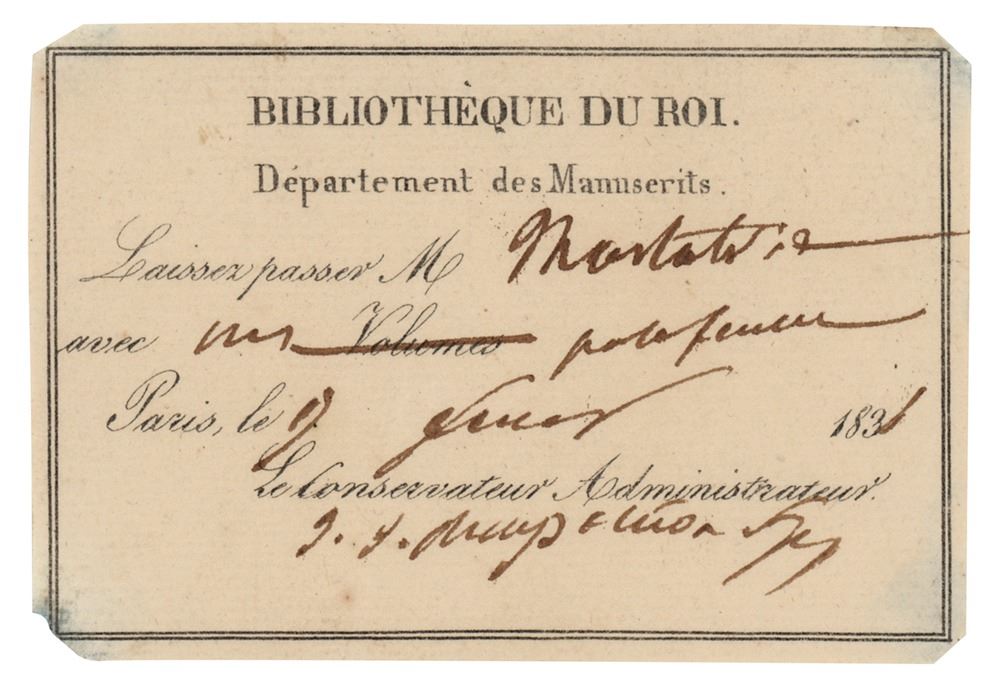 BIBLIOTHÈQUE DU ROI.
Département des Manuscrits.
Laissez passer M
avec un Volumes porte feuille
Paris, le 9 fevrier 1831
Le Conservateur Administrateur.
J. J. champollion fig